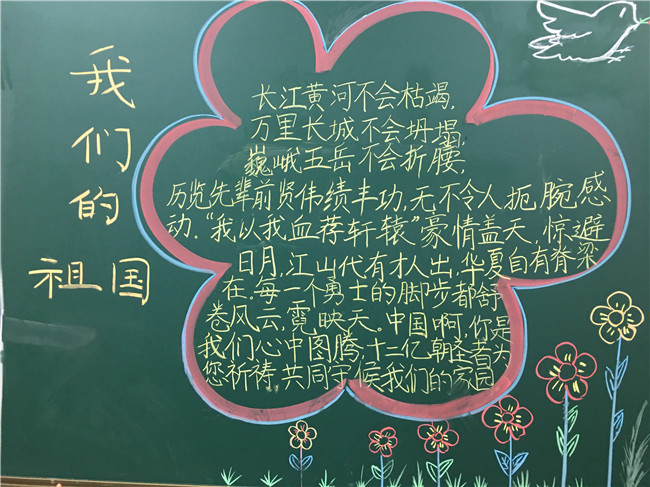 我们的
祖国
长江黄河不会枯竭,
万里长城不会坍塌,
巍峨五岳不会折腰,
历览先辈前贤伟绩丰功,无不令人扼腕感
动.“我以我血荐轩辕”豪情盖天,惊避
日月,江山代有才人出,华夏自有脊梁
在.每一个勇士的脚步都舒
卷风云,霓映天。中国啊,你是
我们心中图腾,十二亿朝圣者为
您祈祷,共同守候我们的家园.